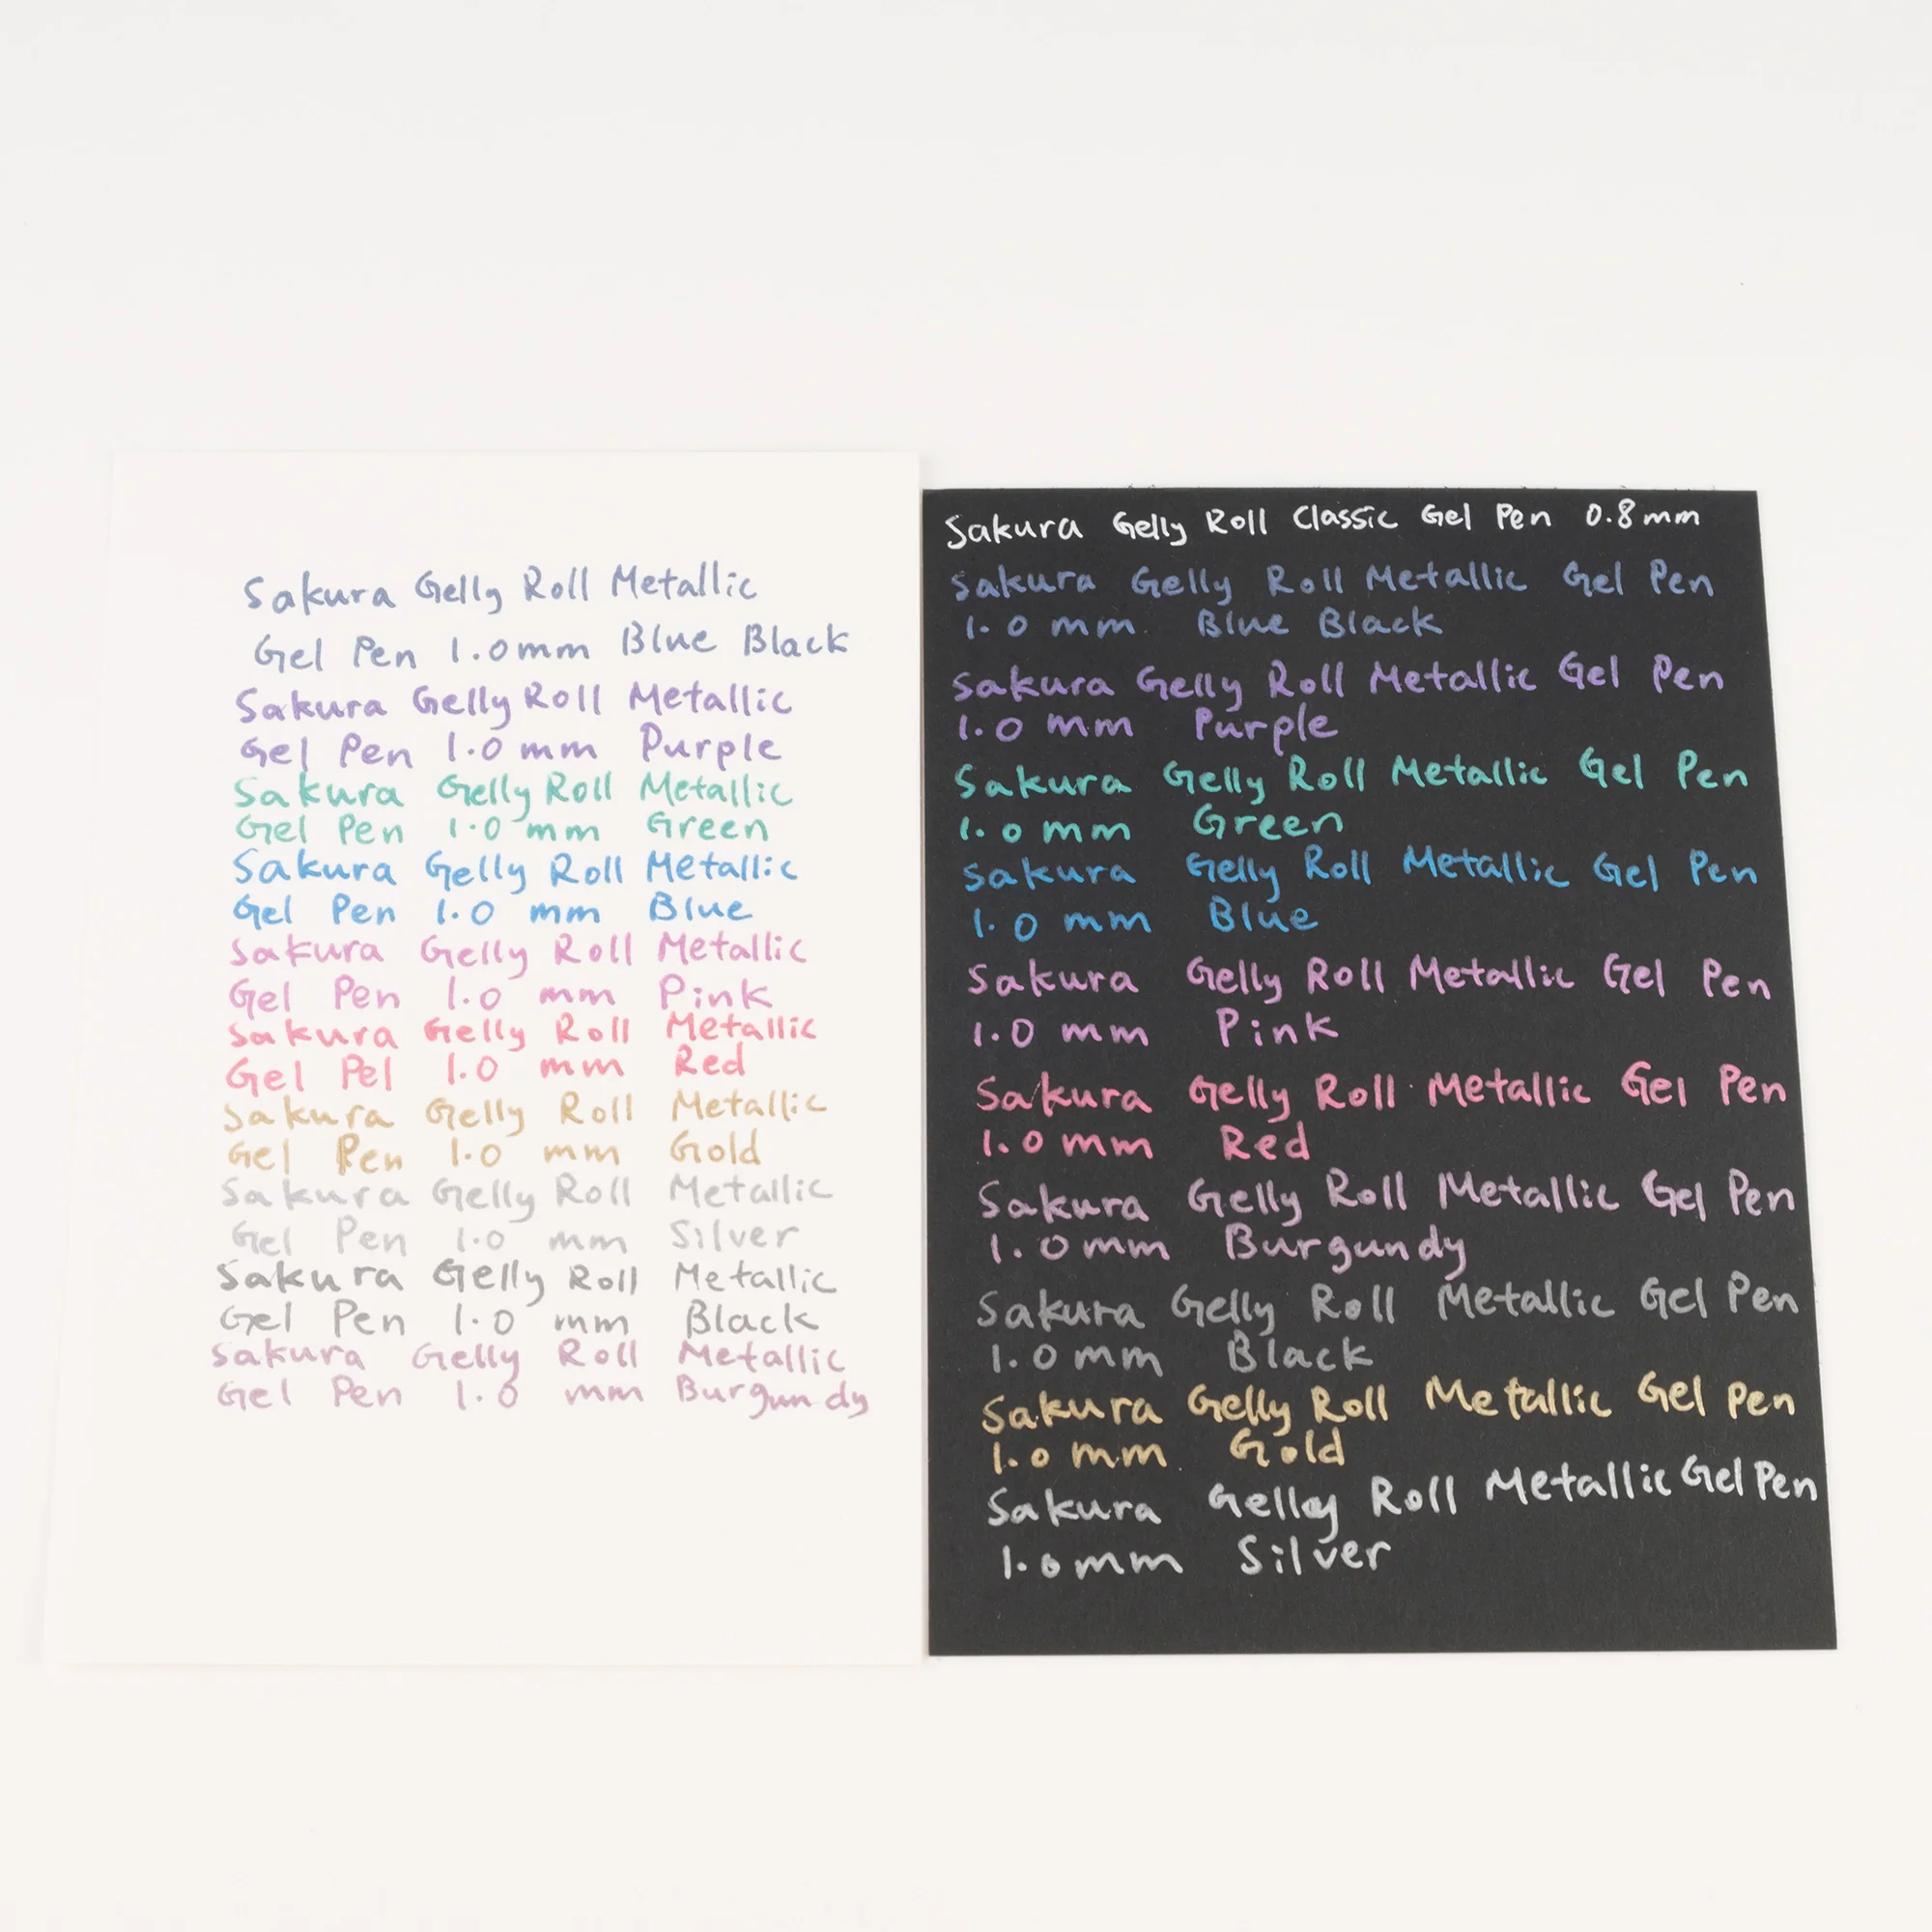 Sakura Gelly Roll Metallic
Gel Pen 1.0mm Blue Black
Sakura Gelly Roll Metallic
Gel Pen 1.0 mm Purple
Sakura Gelly Roll Metallic
Gel Pen 1.0 mm Green
Sakura Gelly Roll Metallic
Gel Pen 1.0 mm Blue
Sakura Gelly Roll Metallic
Gel Pen 1.0 mm Pink
Sakura Gelly Roll Metallic
Gel Pel 1.0 mm Red
Sakura Gelly Roll Metallic
Gel Pen 1.0 mm Gold
Sakura Gelly Roll Metallic
Gel Pen 1.0 mm Silver
Sakura Gelly Roll Metallic
Gel Pen 1.0 mm Black
Sakura Gelly Roll Metallic
Gel Pen 1.0 mm Burgundy
Sakura Gelly Roll Classic Gel Pen 0.8mm
Sakura Gelly Roll Metallic Gel Pen
1.0 mm Blue Black
Sakura Gelly Roll Metallic Gel Pen
1.0 mm Purple
Sakura Gelly Roll Metallic Gel Pen
1.0 mm Green
Sakura Gelly Roll Metallic Gel Pen
1.0 mm Blue
Sakura Gelly Roll Metallic Gel Pen
1.0 mm Pink
Sakura Gelly Roll Metallic Gel Pen
1.0 mm Red
Sakura Gelly Roll Metallic Gel Pen
1.0mm Burgundy
Sakura Gelly Roll Metallic Gel Pen
1.0mm Black
Sakura Gelly Roll Metallic Gel Pen
1.0 mm Gold
Sakura Gelly Roll Metallic Gel Pen
1.0mm Silver